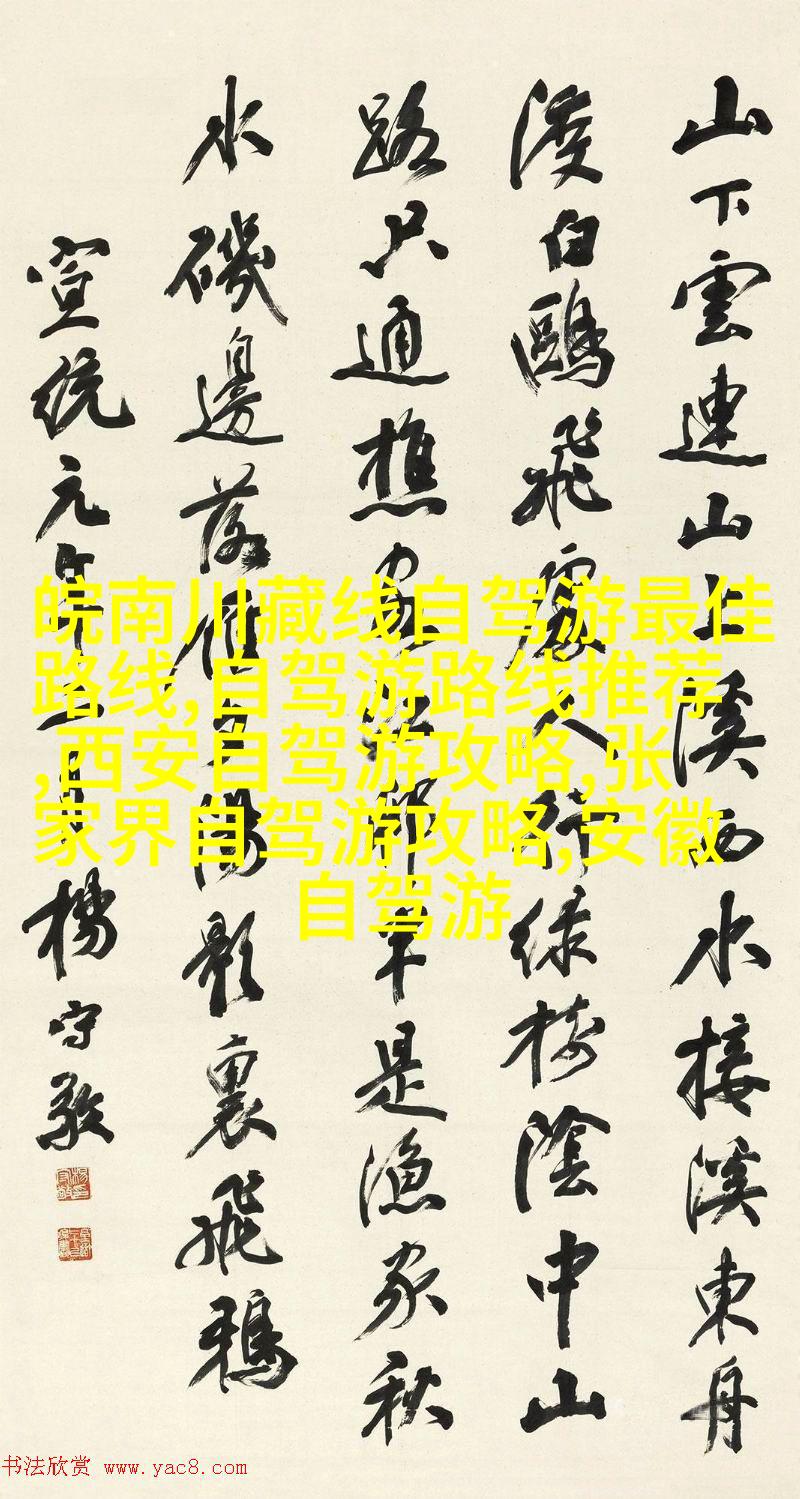 山下雲連山上溪西水接溪東舟
渡白鷗飛處人行綠樹陰中山
路只通樵客江邨半是漁家秋
水磯邊落雁夕陽影裏飛鴉
宣統元年 楊守敬
皖南川藏线自驾游最佳
路线,自驾游路线推荐
,西安自驾游攻略,张
家界自驾游攻略,安徽
自驾游
书法欣赏 www.yac8.com